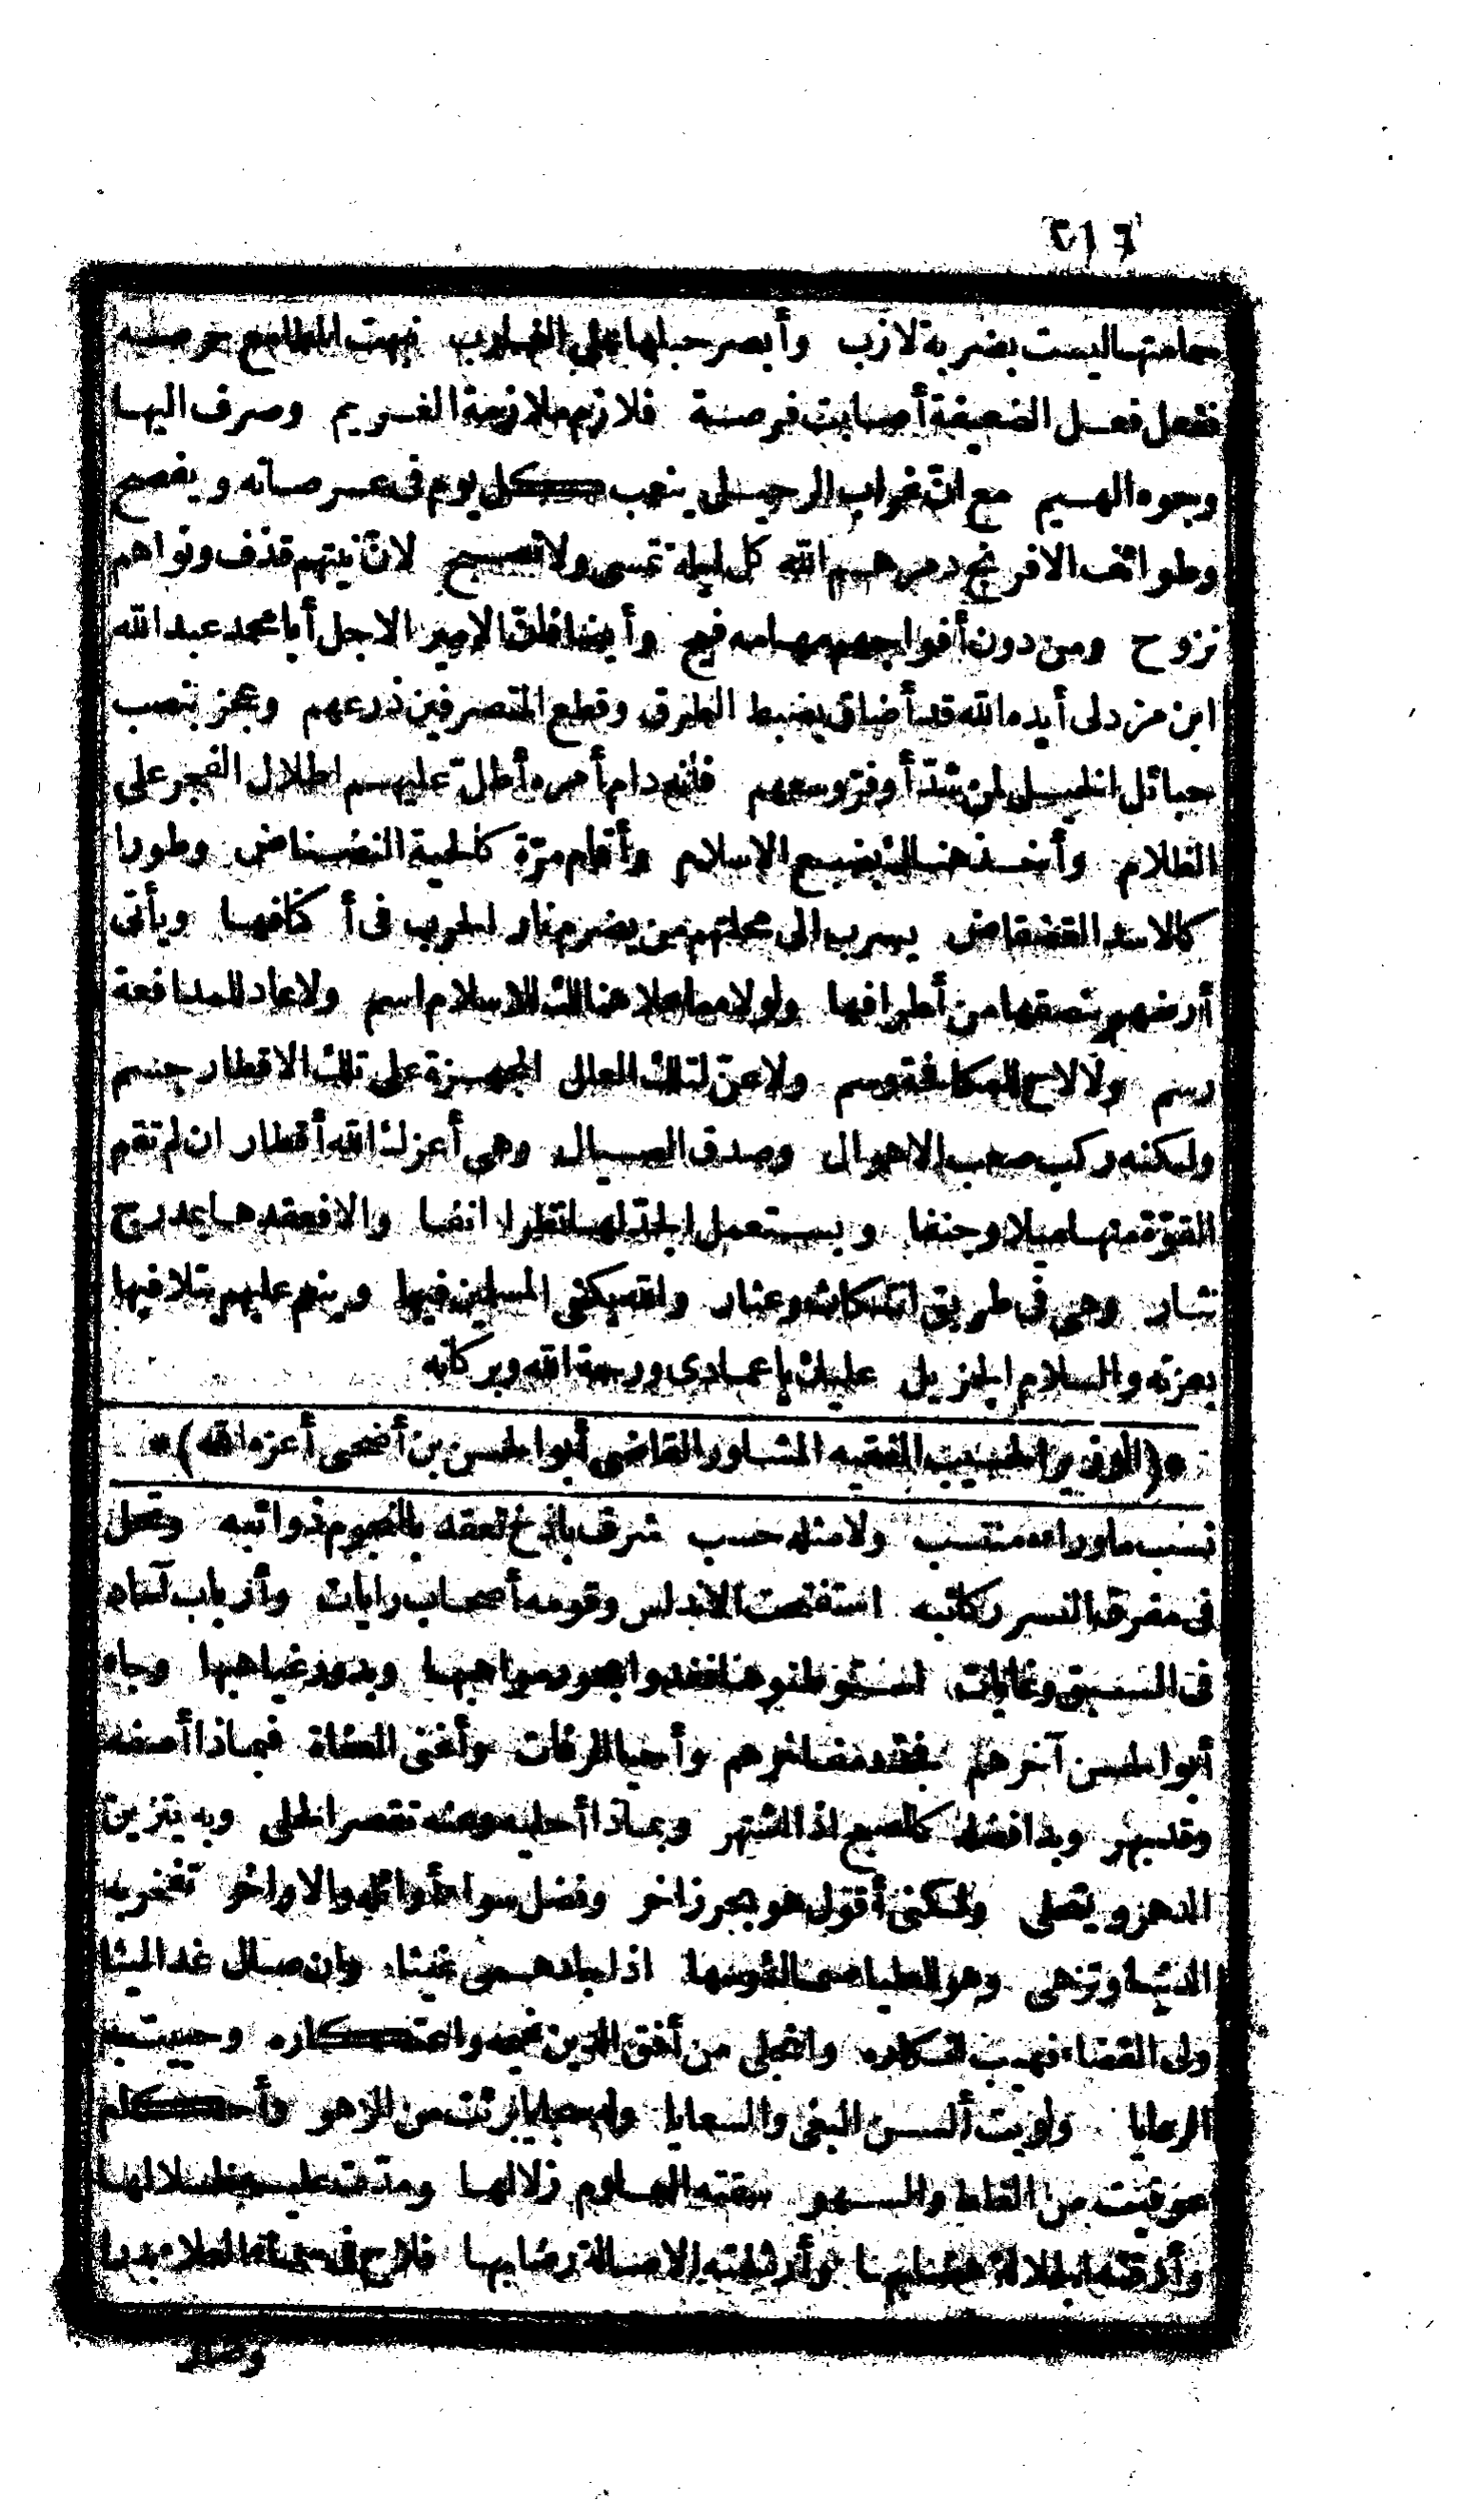 ٢١٦
حمامتها ليست بضربة لازب وأبصر حبلها على الغارب نهبت المطامع حرصه
ففعل فعل الضعيفة أصابت فرصة فلازم ملازمة الغريم وصرف اليها
وجوه الهيم مع انّ غراب الرحيل ينعب كل يوم فى عرصاته ويفصح
وطوائف الافرنج دمرهم الله كل ليلة تمسى ولا تصبح لانّ نيتهم قذف ونواهم
نزوح ومن دون أفواجهم مهامه فيح وأيضا فانّ الامير الاجل أبا محمد عبد الله
ابن مزدلى أيده الله قد أضاق بضبط الطرق وقطع المتصرفين ذرعهم وعجز بنصب
حبائل الخيل لمن شذ أو فتر وسعهم فانه دام أمره أطل عليهم اطلال الفجر على
الظلام وأخذ هنالك بضبع الاسلام وأقام مرّة كالحية النضناض وطورا
كالاسد القضقاض يسرب الى محلتهم من يضرم نار الحرب فى أكنافها ويأتى
أرضهم ينقصها من أطرافها ولولا ما علا هنالك للاسلام اسم ولا عاد للمدافعة
رسم ولا لاح للمكافحة وسم ولا عنّ لتلك العلل المجهزة على تلك الاقطار حسم
ولكنه ركب صعب الاهوال وصدق الصيال وهى أعزك الله أقطار ان لم تقم
القوّة منها ميلا وجنفا ويستعمل الجدّ لها نظرا انفا والا فعقدها بمدرج
نثار وهى فى طريق انتكاث وعثار والله يكفى المسلمين فيها وينعم عليهم بتلافيها
بعزته والسلام الجزيل عليك يا عمادى ورحمة الله وبركاته
*(الوزير الحسيب الفقيه المشاور القاضى أبو الحسن بن أضحى أعزه الله)*
نسب ما وراءه منتسب ولا مثله حسب شرف باذخ تعقد بالنجوم ذوائبه وتحل
فى مفرق النسر ركائبه استفتحت الاندلس وقومه أصحاب رايات وأرباب آماد
فى السبق وغايات استوطنوها فغدوا بحور مواهبها وبدور غياهبها وجاء
أبو الحسن آخرهم فجدد مفاخرهم وأحيا الرفات وأغنى العفاة فماذا أصفه
وقد بهر وبدا فضله كالصبح اذا اشتهر وبماذا أحليه وعنه تقصر الحلى وبه يتزين
الدهر ويتحلى ولكنى أقول هو بحر زاخر وفضل سواء أوائله والاواخر تفخر به
الدنيا وتزهى وهو للعلياء سماك وسها اذا جاد همى غيثا وان صال غدا ليثا
ولى القضاء فهيب انكاره وانجلى من أفق الدين غيمه واعتكاره وحييت به
الرعايا ولويت ألسن البغى والسعايا وله سجايا برئت من الزهو وأحكام
عوفيت من الغلط والسهو سقته العلوم زلالها ومدّت عليه ظلالها
وأرقته الجلالة هضابها وأرشفته الاصالة رضابها فلاح فى سماء العلا بدرا